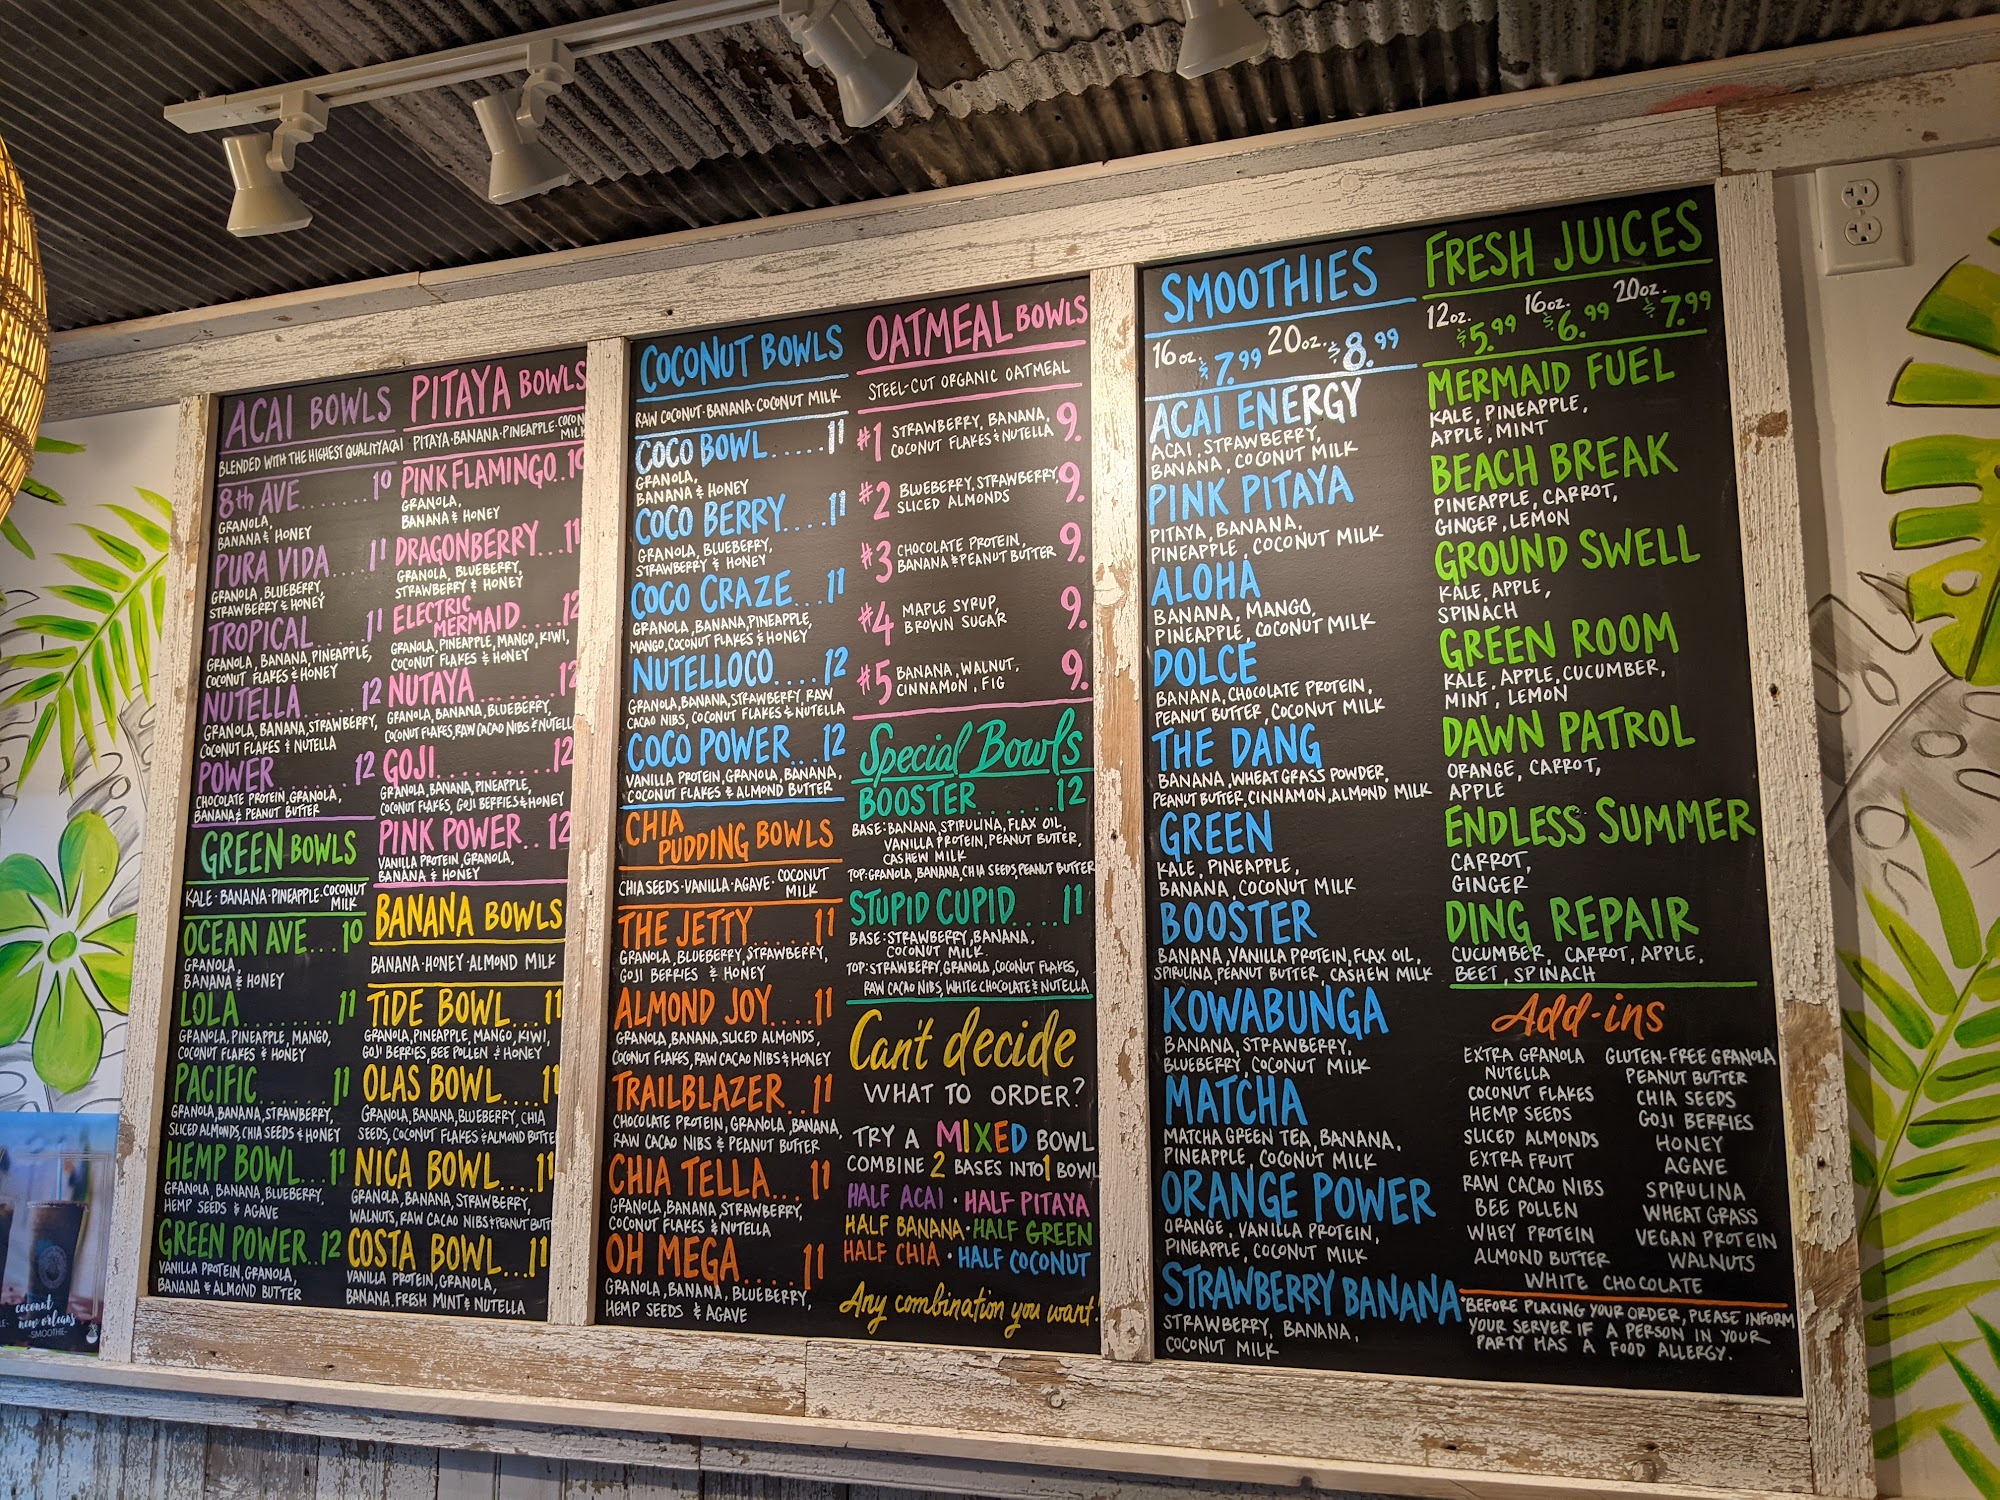 ACAI BOWLS
BLENDED WITH THE HIGHEST QUALITY ACAI
8th AVE......10
GRANOLA,
BANANA & HONEY
PURA VIDA....11
GRANOLA, BLUEBERRY,
STRAWBERRY & HONEY
TROPICAL.....11
GRANOLA, BANANA, PINEAPPLE,
COCONUT FLAKES & HONEY
NUTELLA......12
GRANOLA, BANANA, STRAWBERRY,
COCONUT FLAKES & NUTELLA
POWER.......12
CHOCOLATE PROTEIN, GRANOLA,
BANANA & PEANUT BUTTER
GREEN BOWLS
KALE·BANANA·PINEAPPLE·COCONUT
MILK
OCEAN AVE...10
GRANOLA,
BANANA & HONEY
LOLA.........11
GRANOLA, PINEAPPLE, MANGO,
COCONUT FLAKES & HONEY
PACIFIC......11
GRANOLA, BANANA, STRAWBERRY,
SLICED ALMONDS, CHIA SEEDS & HONEY
HEMP BOWL...11
GRANOLA, BANANA, BLUEBERRY,
HEMP SEEDS & AGAVE
GREEN POWER..12
VANILLA PROTEIN, GRANOLA,
BANANA & ALMOND BUTTER
PITAYA BOWLS
PITAYA·BANANA·PINEAPPLE·COCON
MILK
PINK FLAMINGO..10
GRANOLA,
BANANA & HONEY
DRAGONBERRY...11
GRANOLA, BLUEBERRY,
STRAWBERRY & HONEY
ELECTRIC
MERMAID.....12
GRANOLA, PINEAPPLE, MANGO, KIWI,
COCONUT FLAKES & HONEY
NUTAYA.......12
GRANOLA, BANANA, BLUEBERRY,
COCONUT FLAKES, RAW CACAO NIBS & NUTELLA
GOJI.........12
GRANOLA, BANANA, PINEAPPLE,
COCONUT FLAKES, GOJI BERRIES & HONEY
PINK POWER..12
VANILLA PROTEIN, GRANOLA,
BANANA & HONEY
BANANA BOWLS
BANANA·HONEY·ALMOND MILK
TIDE BOWL...11
GRANOLA, PINEAPPLE, MANGO, KIWI,
GOJI BERRIES, BEE POLLEN & HONEY
OLAS BOWL...11
GRANOLA, BANANA, BLUEBERRY, CHIA
SEEDS, COCONUT FLAKES & ALMOND BUTTER
NICA BOWL...11
GRANOLA, BANANA, STRAWBERRY,
WALNUTS, RAW CACAO NIBS & PEANUT BUTT
COSTA BOWL...11
VANILLA PROTEIN, GRANOLA,
BANANA, FRESH MINT & NUTELLA
COCONUT BOWLS
RAW COCONUT·BANANA·COCONUT MILK
COCO BOWL.....11
GRANOLA,
BANANA & HONEY
COCO BERRY....11
GRANOLA, BLUEBERRY,
STRAWBERRY & HONEY
COCO CRAZE...11
GRANOLA, BANANA, PINEAPPLE,
MANGO, COCONUT FLAKES & HONEY
NUTELLOCO....12
GRANOLA, BANANA, STRAWBERRY, RAW
CACAO NIBS, COCONUT FLAKES & NUTELLA
COCO POWER...12
VANILLA PROTEIN, GRANOLA, BANANA,
COCONUT FLAKES & ALMOND BUTTER
CHIA
PUDDING BOWLS
CHIA SEEDS·VANILLA·AGAVE·COCONUT
MILK
THE JETTY.....11
GRANOLA, BLUEBERRY, STRAWBERRY,
GOJI BERRIES & HONEY
ALMOND JOY...11
GRANOLA, BANANA, SLICED ALMONDS,
COCONUT FLAKES, RAW CACAO NIBS & HONEY
TRAILBLAZER..11
CHOCOLATE PROTEIN, GRANOLA, BANANA,
RAW CACAO NIBS & PEANUT BUTTER
CHIA TELLA...11
GRANOLA, BANANA, STRAWBERRY,
COCONUT FLAKES & NUTELLA
OH MEGA.....11
GRANOLA, BANANA, BLUEBERRY,
HEMP SEEDS & AGAVE
OATMEAL BOWLS
STEEL-CUT ORGANIC OATMEAL
#1 STRAWBERRY, BANANA, 9.
COCONUT FLAKES & NUTELLA
#2 BLUEBERRY, STRAWBERRY, 9.
SLICED ALMONDS
#3 CHOCOLATE PROTEIN, 9.
BANANA & PEANUT BUTTER
#4 MAPLE SYRUP, 9.
BROWN SUGAR
#5 BANANA, WALNUT, 9.
CINNAMON, FIG
Special Bowls
BOOSTER.......12
BASE: BANANA, SPIRULINA, FLAX OIL,
VANILLA PROTEIN, PEANUT BUTTER,
CASHEW MILK
TOP: GRANOLA, BANANA, CHIA SEEDS, PEANUT BUTTER
STUPID CUPID....11
BASE: STRAWBERRY, BANANA,
COCONUT MILK
TOP: STRAWBERRY, GRANOLA, COCONUT FLAKES,
RAW CACAO NIBS, WHITE CHOCOLATE & NUTELLA
Can't decide
WHAT TO ORDER?
TRY A MIXED BOWL
COMBINE 2 BASES INTO 1 BOWL
HALF ACAI · HALF PITAYA
HALF BANANA · HALF GREEN
HALF CHIA · HALF COCONUT
Any combination you want!
SMOOTHIES
16 oz. $7.99 20 oz. $8.99
ACAI ENERGY
ACAI, STRAWBERRY,
BANANA, COCONUT MILK
PINK PITAYA
PITAYA, BANANA,
PINEAPPLE, COCONUT MILK
ALOHA
BANANA, MANGO,
PINEAPPLE, COCONUT MILK
DOLCE
BANANA, CHOCOLATE PROTEIN,
PEANUT BUTTER, COCONUT MILK
THE DANG
BANANA, WHEAT GRASS POWDER,
PEANUT BUTTER, CINNAMON, ALMOND MILK
GREEN
KALE, PINEAPPLE,
BANANA, COCONUT MILK
BOOSTER
BANANA, VANILLA PROTEIN, FLAX OIL,
SPIRULINA, PEANUT BUTTER, CASHEW MILK
KOWABUNGA
BANANA, STRAWBERRY,
BLUEBERRY, COCONUT MILK
MATCHA
MATCHA GREEN TEA, BANANA,
PINEAPPLE, COCONUT MILK
ORANGE POWER
ORANGE, VANILLA PROTEIN,
PINEAPPLE, COCONUT MILK
STRAWBERRY BANANA
STRAWBERRY, BANANA,
COCONUT MILK
FRESH JUICES
12oz. $5.99 16oz. $6.99 20oz. $7.99
MERMAID FUEL
KALE, PINEAPPLE,
APPLE, MINT
BEACH BREAK
PINEAPPLE, CARROT,
GINGER, LEMON
GROUND SWELL
KALE, APPLE,
SPINACH
GREEN ROOM
KALE, APPLE, CUCUMBER,
MINT, LEMON
DAWN PATROL
ORANGE, CARROT,
APPLE
ENDLESS SUMMER
CARROT,
GINGER
DING REPAIR
CUCUMBER, CARROT, APPLE,
BEET, SPINACH
Add-ins
EXTRA GRANOLA GLUTEN-FREE GRANOLA
NUTELLA PEANUT BUTTER
COCONUT FLAKES CHIA SEEDS
HEMP SEEDS GOJI BERRIES
SLICED ALMONDS HONEY
EXTRA FRUIT AGAVE
RAW CACAO NIBS SPIRULINA
BEE POLLEN WHEAT GRASS
WHEY PROTEIN VEGAN PROTEIN
ALMOND BUTTER WALNUTS
WHITE CHOCOLATE
*BEFORE PLACING YOUR ORDER, PLEASE INFORM
YOUR SERVER IF A PERSON IN YOUR
PARTY HAS A FOOD ALLERGY.
coconut
new orleans
-SMOOTHIE-